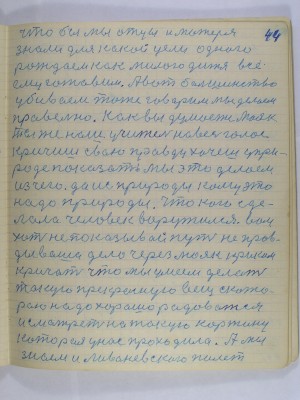 что бы мы отцы и матеря 44
знали для какой цели одного
рождаем как милого дитя всё
ему готовим. А вот большинство
убиваем тоже говорим мы делаем
правельно. Как вы думаете
ты же наш учител на весь голос
кричиш свою правду хочеш у при-
роде показать мы это делаем
из чего. да из природы кому это
надо природы. Что кого сде-
лала человек вооружился. вам
хоть не показывай путь не прав-
дие ваша дело через маяк
кричат что мы умеем делать
такую прекрасную вещ
надо хорошо радоватся
и смотреть на такую картину
которая у нас проходила. А мы
знаем и Ливаневского полет